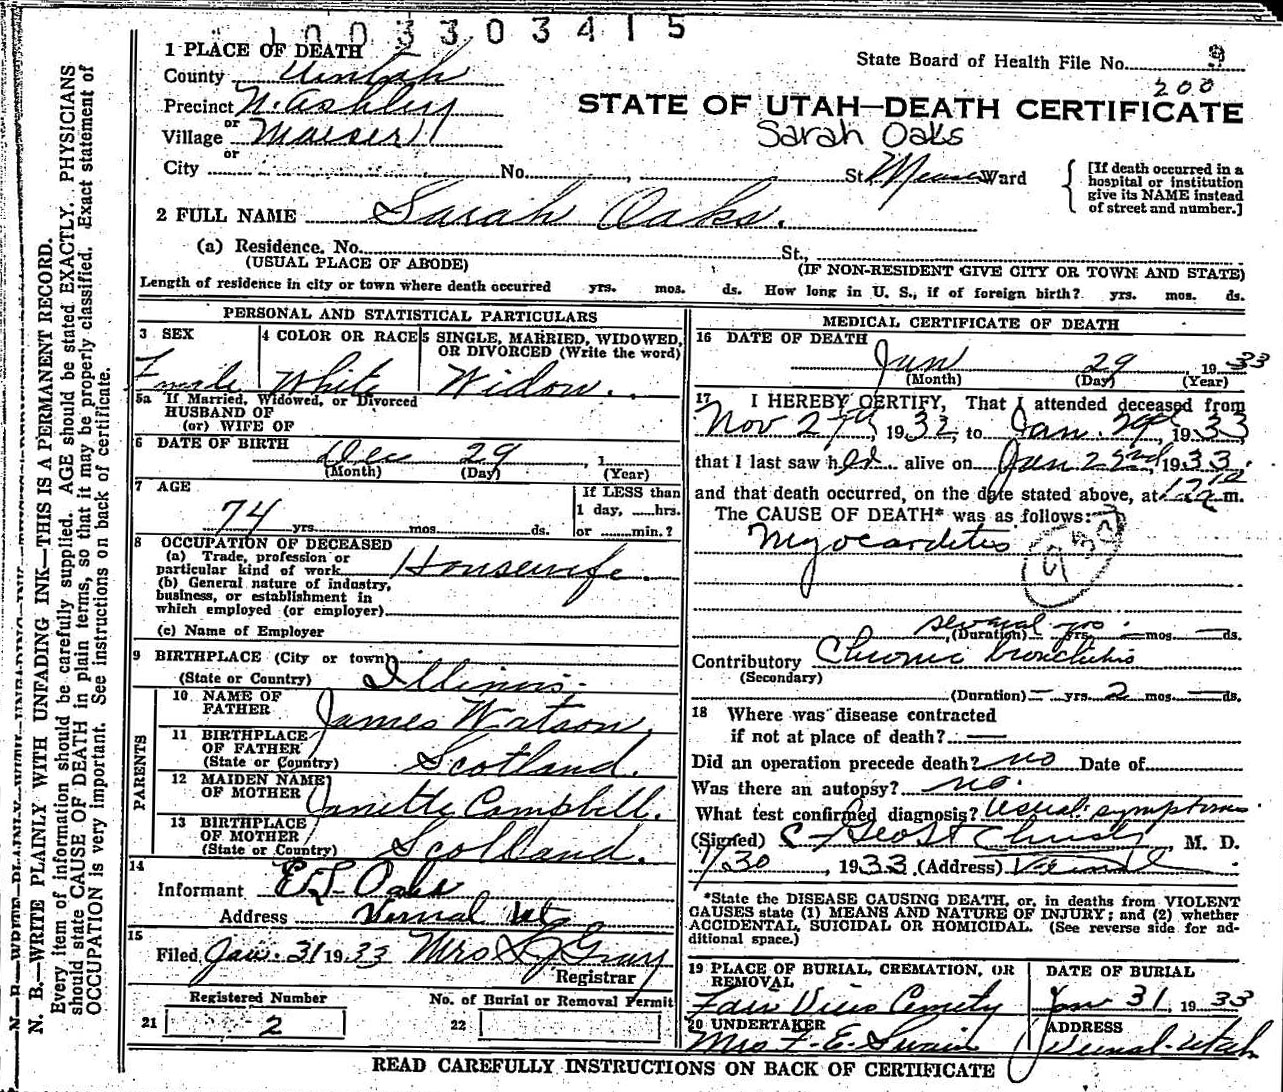 1003303415
1 PLACE OF DEATH
State Board of Health File No. 9
County Uintah
200
Precinct N. Ashley
STATE OF UTAH—DEATH CERTIFICATE
or
Village Maeser
Sarah Oaks
or
City No. , St. Ward
[If death occurred in a
hospital or institution
give its NAME instead
of street and number.]
2 FULL NAME Sarah Oaks.
(a) Residence. No. St.,
(USUAL PLACE OF ABODE) (IF NON-RESIDENT GIVE CITY OR TOWN AND STATE)
Length of residence in city or town where death occurred yrs. mos. ds. How long in U. S., if of foreign birth? yrs. mos. ds.
PERSONAL AND STATISTICAL PARTICULARS
3 SEX
Female
4 COLOR OR RACE
White
5 SINGLE, MARRIED, WIDOWED,
OR DIVORCED (Write the word)
Widow.
5a If Married, Widowed, or Divorced
HUSBAND OF
(or) WIFE OF
6 DATE OF BIRTH
Dec 29 , 1
(Month) (Day) (Year)
7 AGE
74 yrs. mos. ds.
If LESS than
1 day, hrs.
or min.?
8 OCCUPATION OF DECEASED
(a) Trade, profession or
particular kind of work Housewife.
(b) General nature of industry,
business, or establishment in
which employed (or employer)
(c) Name of Employer
9 BIRTHPLACE (City or town)
(State or Country) Illinois.
PARENTS
10 NAME OF
FATHER James Watson
11 BIRTHPLACE
OF FATHER
(State or Country) Scotland.
12 MAIDEN NAME
OF MOTHER Janette Campbell.
13 BIRTHPLACE
OF MOTHER
(State or Country) Scotland.
14
Informant Oaks
Address Vernal Uta
15
Filed Jan. 31 1933 Mrs Gray
Registrar
Registered Number
21 2
No. of Burial or Removal Permit
22
MEDICAL CERTIFICATE OF DEATH
16 DATE OF DEATH
Jan 29 , 1933
(Month) (Day) (Year)
17 I HEREBY CERTIFY, That I attended deceased from
Nov 27th, 1932, to Jan. 29th, 1933
that I last saw her alive on Jan 22nd, 1933,
and that death occurred, on the date stated above, at m.
The CAUSE OF DEATH* was as follows:
Myocarditis
several yrs.
(Duration) — yrs. — mos. — ds.
Contributory Chronic bronchitis
(Secondary)
(Duration) — yrs. 2 mos. — ds.
18 Where was disease contracted
if not at place of death? —
Did an operation precede death? no Date of
Was there an autopsy? no.
What test confirmed diagnosis? Usual symptoms
(Signed) M. D.
1/30 , 1933 (Address) Vernal
*State the DISEASE CAUSING DEATH, or, in deaths from VIOLENT
CAUSES state (1) MEANS AND NATURE OF INJURY; and (2) whether
ACCIDENTAL, SUICIDAL OR HOMICIDAL. (See reverse side for ad-
ditional space.)
19 PLACE OF BURIAL, CREMATION, OR
REMOVAL
DATE OF BURIAL
Jan 31, 1933
20 UNDERTAKER
Mrs F. E. Swain
ADDRESS
Vernal-Utah
READ CAREFULLY INSTRUCTIONS ON BACK OF CERTIFICATE
N. B.—WRITE PLAINLY WITH UNFADING INK—THIS IS A PERMANENT RECORD.
Every item of information should be carefully supplied. AGE should be stated EXACTLY. PHYSICIANS
should state CAUSE OF DEATH in plain terms, so that it may be properly classified. Exact statement of
OCCUPATION is very important. See instructions on back of certificate.